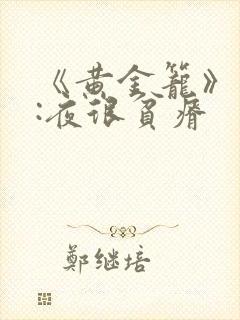 《黄金籠》
:夜很貧瘠
鄭继培